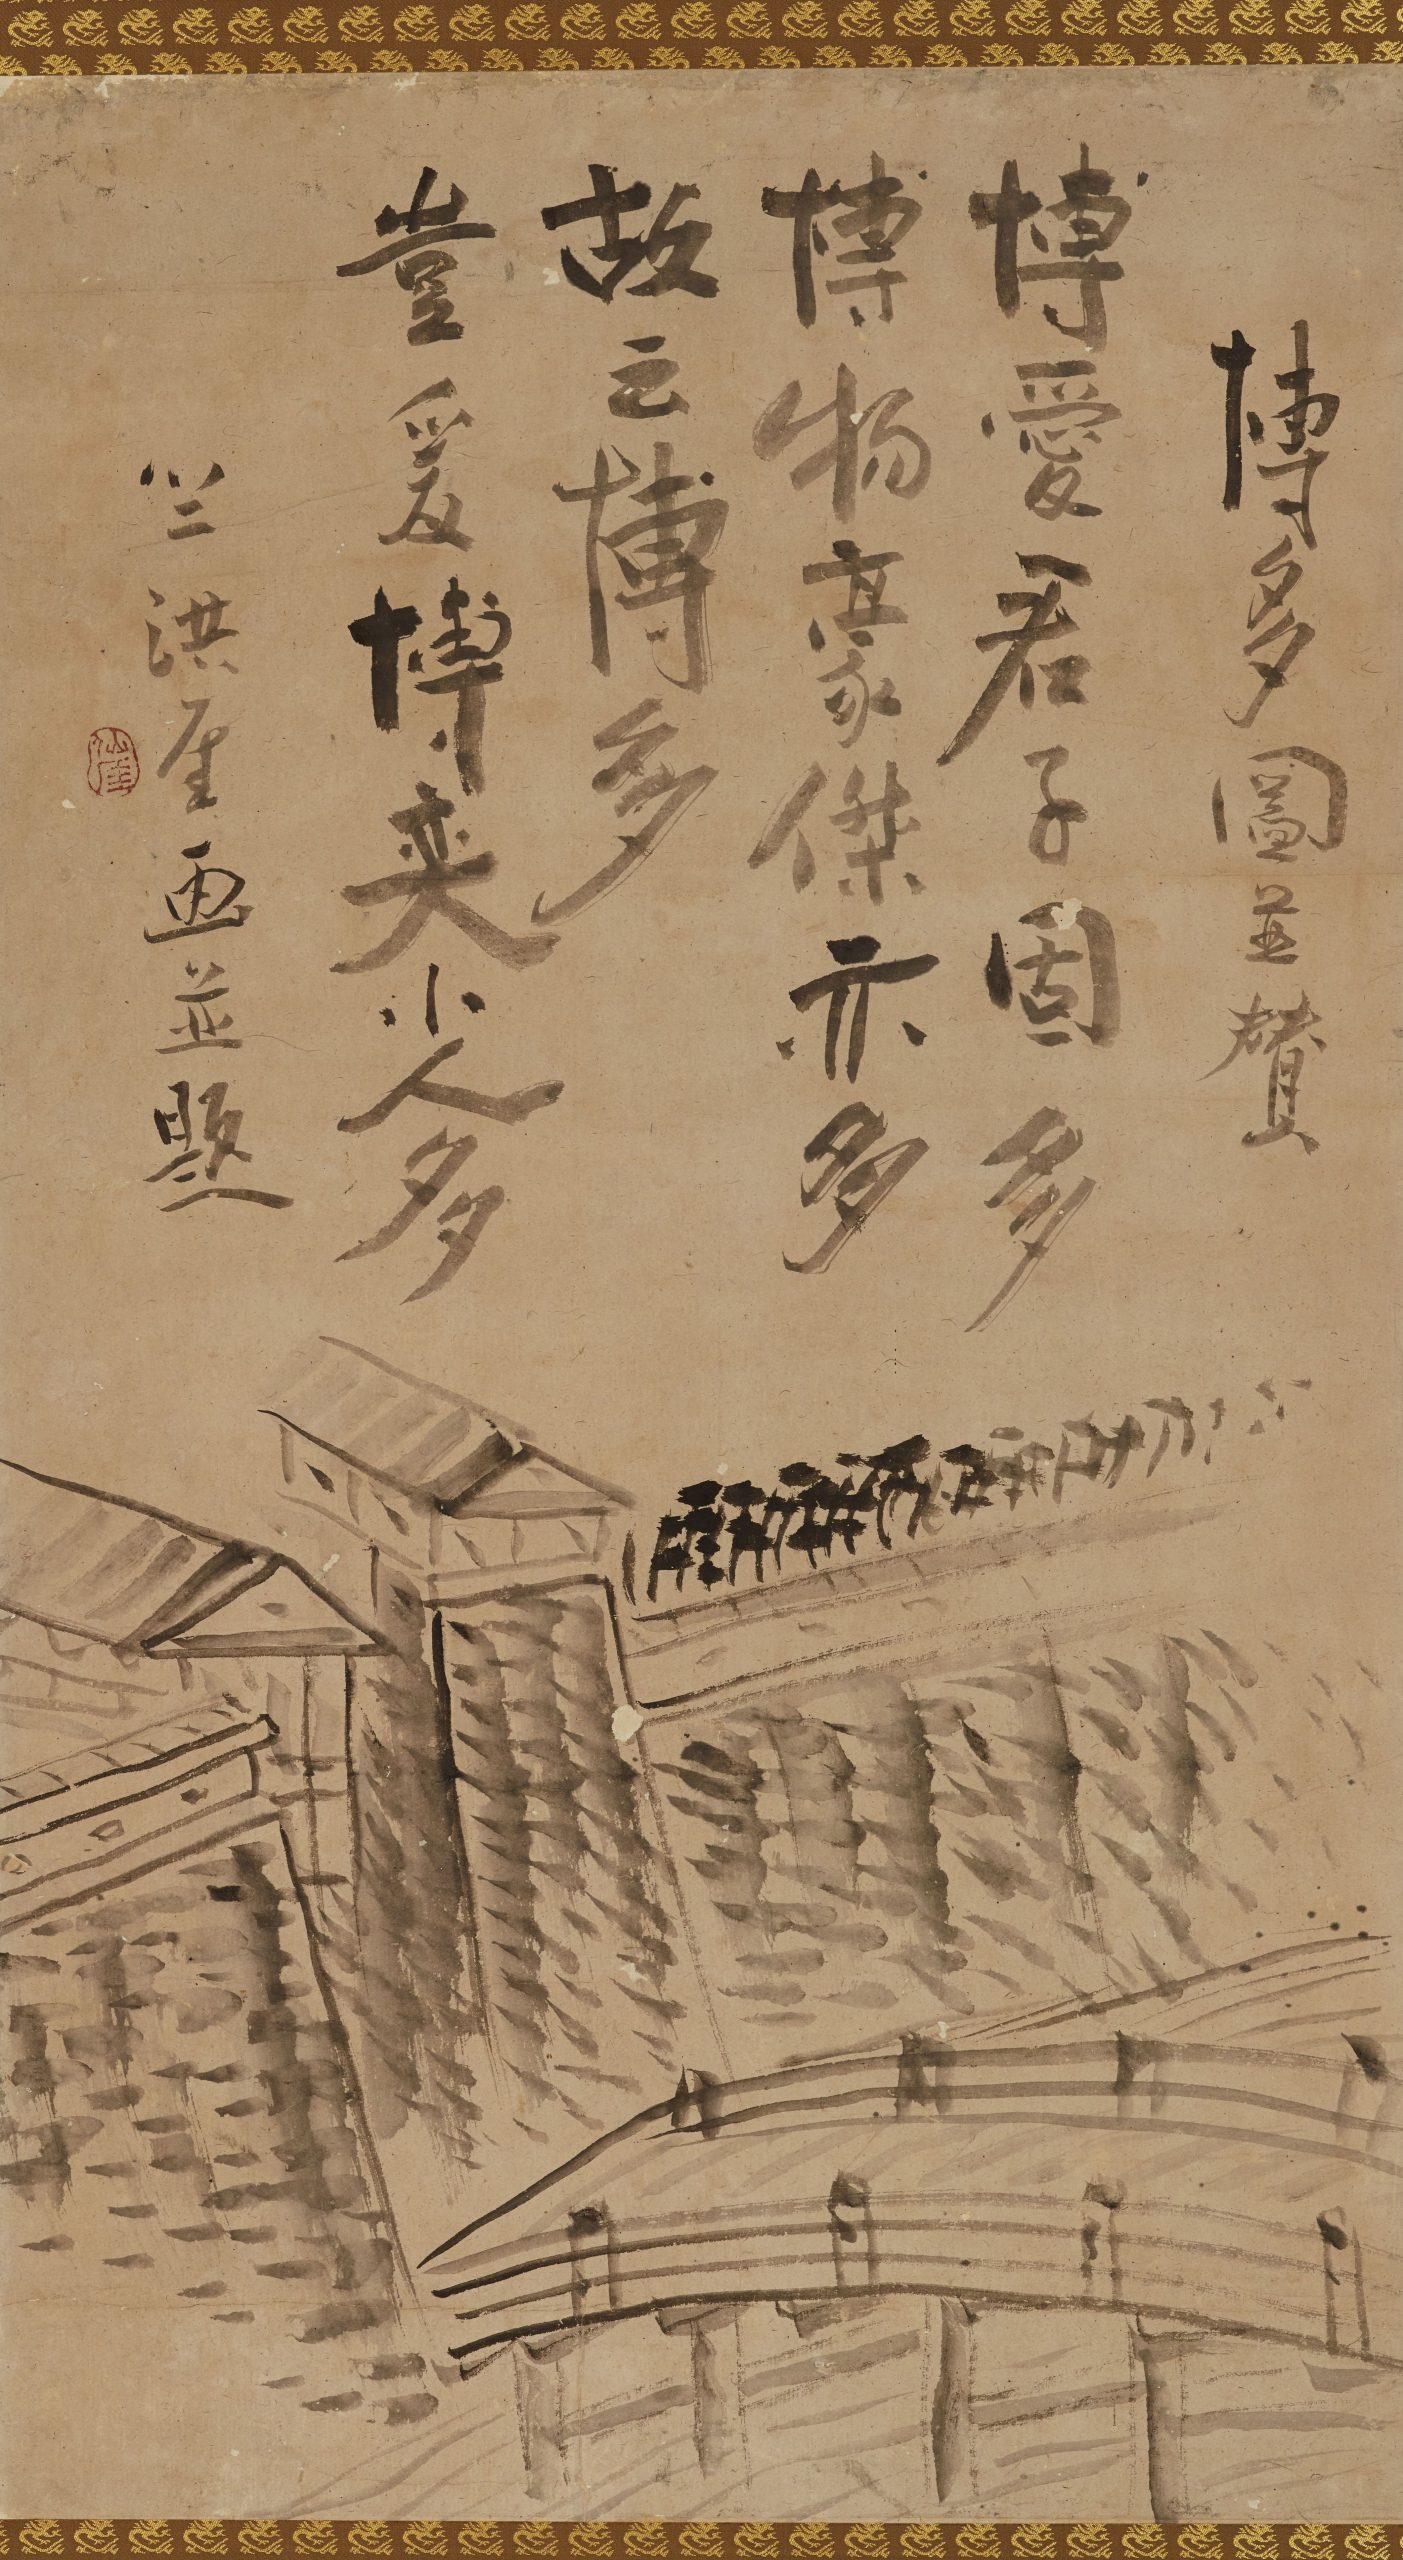 博多圖並賛
博愛君子固多
博物豪傑亦多
故云博多
豈爰博奕小人多
竺洪厓画並題
仙厓